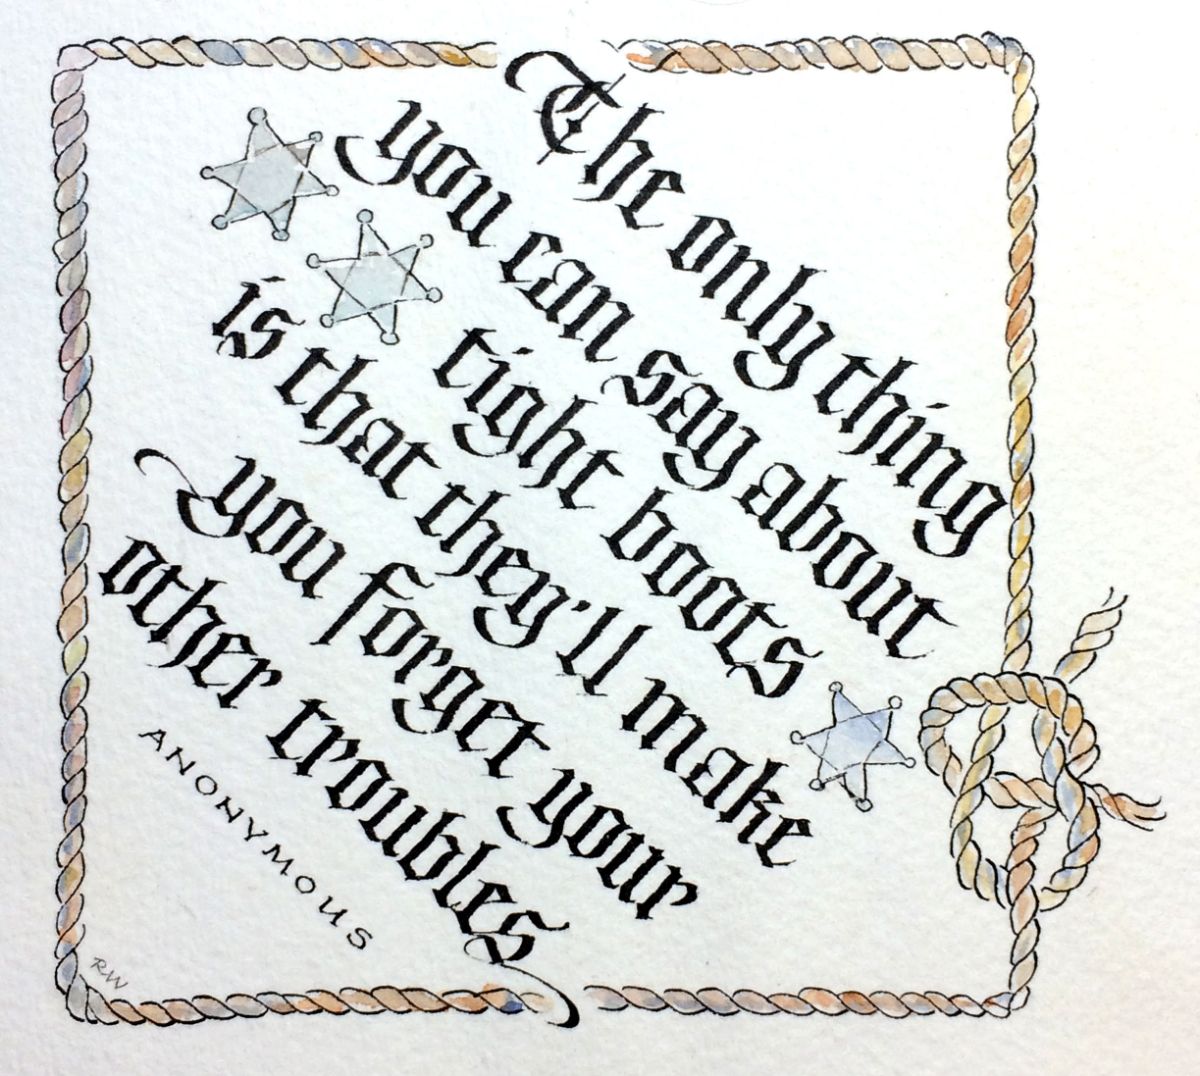 The only thing
you can say about
tight boots
is that they'll make
you forget your
other troubles
ANONYMOUS
RW